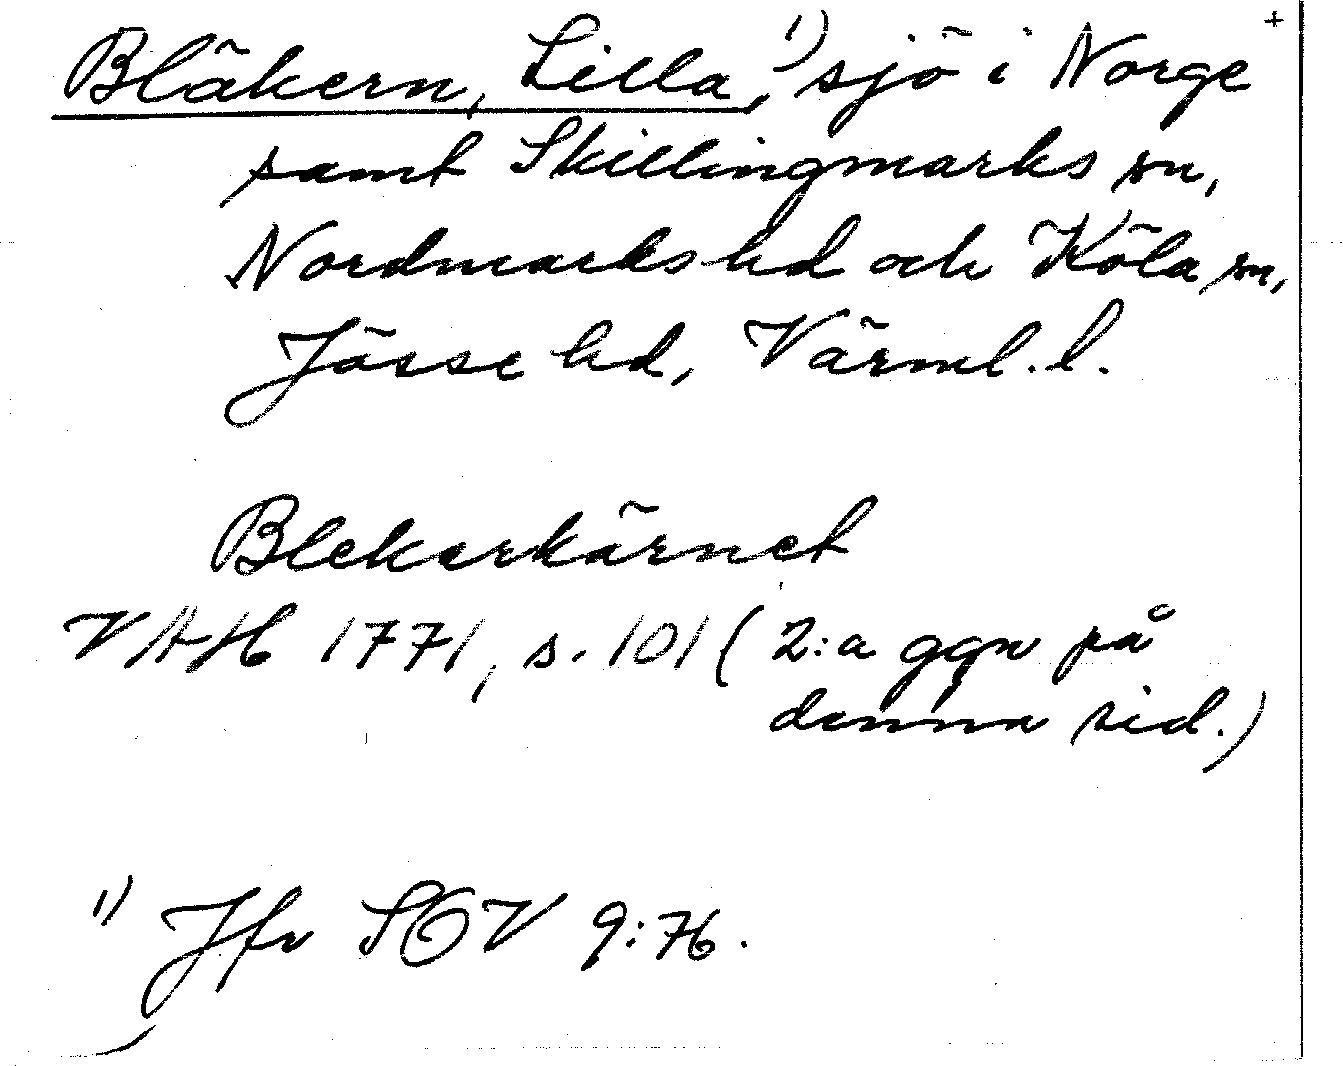 Bläkern, Lilla,¹⁾ sjö i Norge +
samt Skillingmarks sn,
Nordmarks hd och Köla sn,
Jösse hd, Värml. l.
Blekerkärnet
VAH 1771, s. 101 (2:a ggn på
denna sid.)
¹⁾ Jfr SOV 9:76.